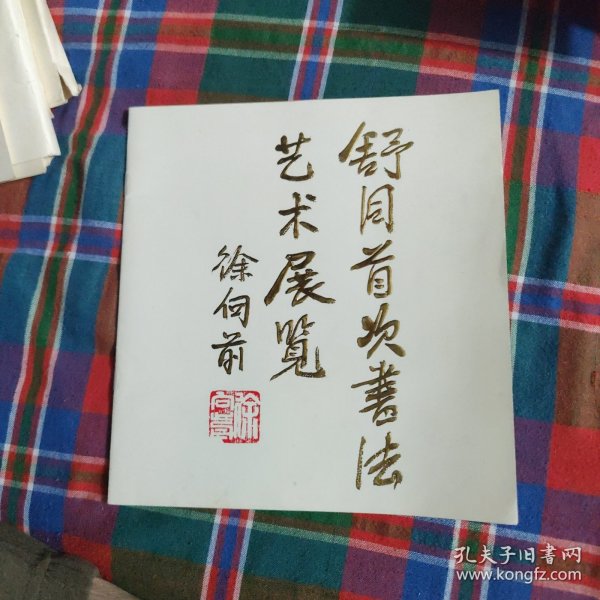 舒同首次書法
艺术展览
徐向前
徐向前
孔夫子旧书网
www.kongfz.com